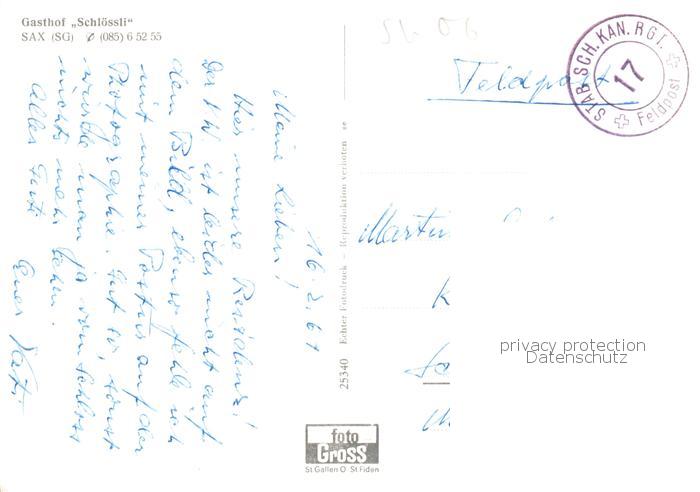 Gasthof „Schlössli“
SAX (SG) (085) 6 52 55
16.2.67
Meine Lieben!
Hier unsere Residenz!
Der PW ist leider nicht auf
dem Bild, ebenso fehle ich
mit meiner Postur auf der
Photographie. Gut so, sonst
würde man ja vom Schloss
nichts mehr sehen.
Alles Gute
Euer
25340 Echter Fotodruck — Reproduktion verboten
foto
Gross
St Gallen O St Fiden
Feldpost
STAB SCH. KAN. RGT.
17
Feldpost
Martin
privacy protection
Datenschutz